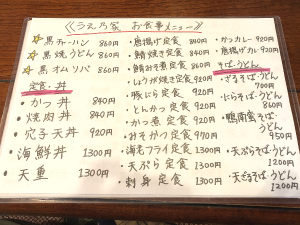 《うえ乃家 お食事メニュー》
☆黒チャーハン 860円
☆黒焼うどん 860円
☆黒オムソバ 860円
定食・丼
・かつ丼 840円
・焼肉丼 840円
・穴子天丼 920円
・海鮮丼 1300円
・天重 1300円
・唐揚げ定食 860円
・鯖焼き定食 840円
・鯖みそ煮定食 860円
・しょうが焼き定食 920円
・豚にら定食 920円
・とんかつ定食 920円
・かつ煮定食 920円
・みそかつ定食 970円
・海老フライ定食 1300円
・天ぷら定食 1300円
・刺身定食 1300円
・かつカレー 920円
・唐揚げカレー 920円
そば・うどん
・ざるそば・うどん
700円
・にらそば・うどん
860円
・鴨南蛮そば・うどん
950円
・天ぷらそば・うどん
1200円
・天ざるそば・うどん
1200円